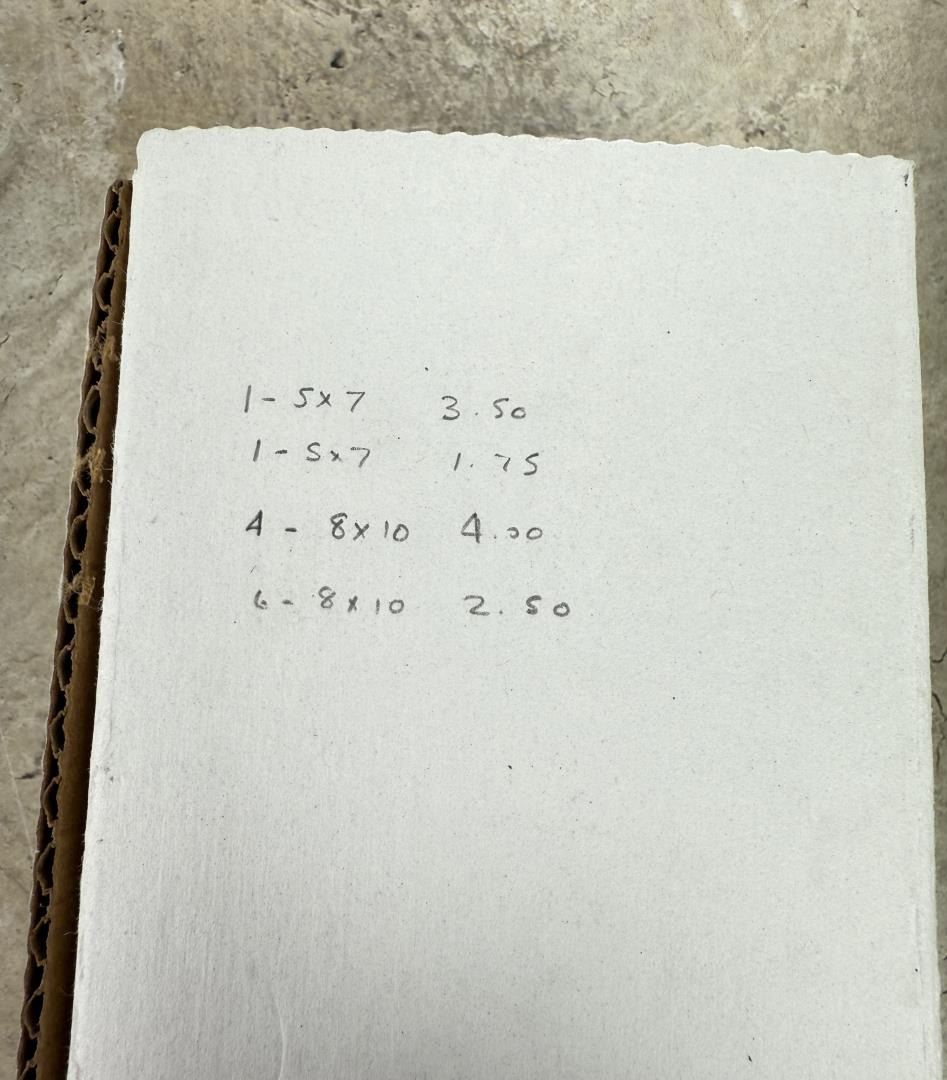 1- 5x7 3.50
1- 5x7 1.75
4 - 8x10 4.00
6- 8x10 2.50